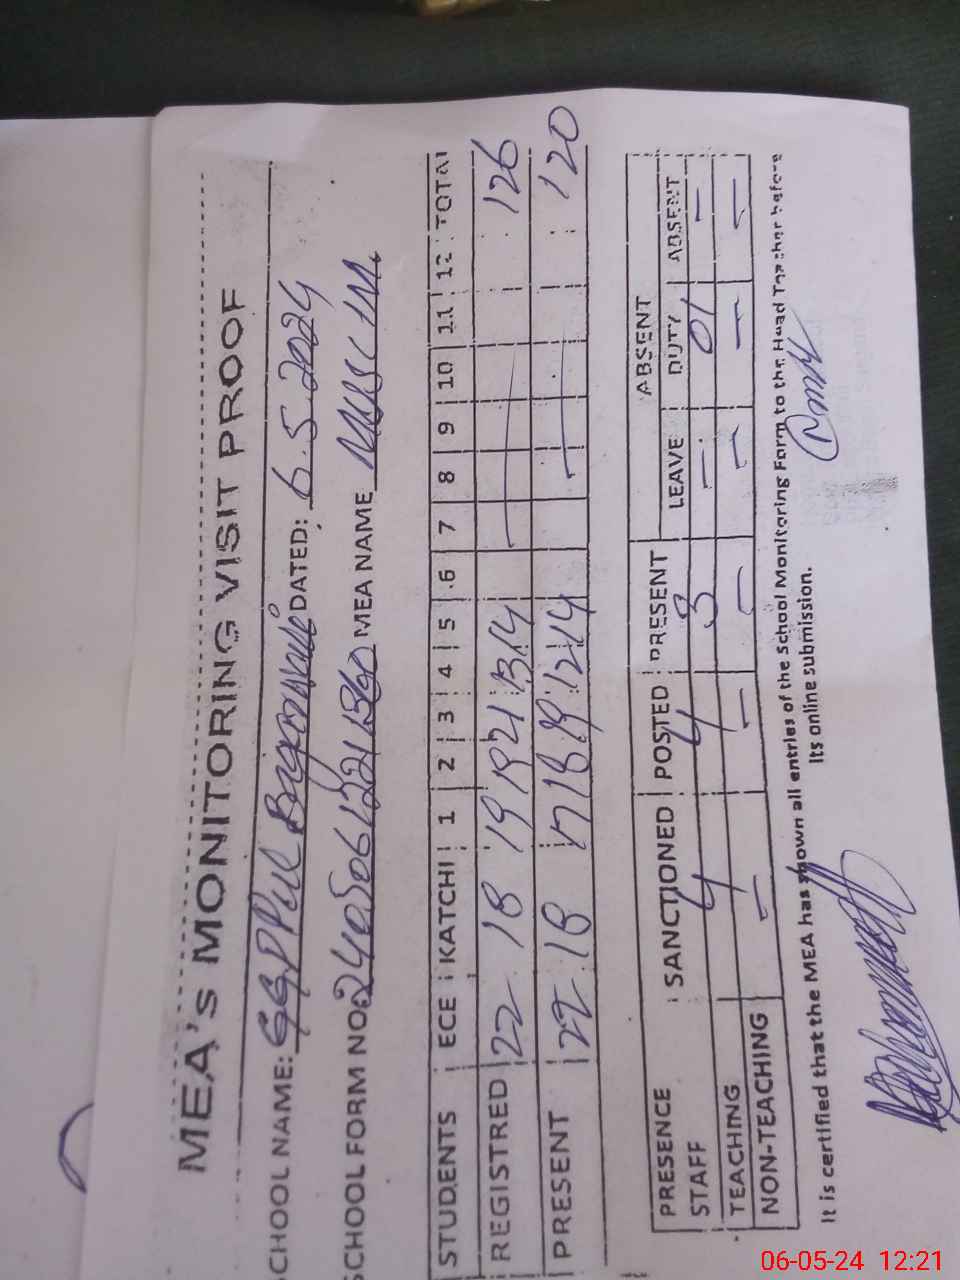 MEA's MONITORING VISIT PROOF
SCHOOL NAME: DATED: 6.5.2024
SCHOOL FORM NO. MEA NAME
STUDENTS ECE KATCHI 1 2 3 4 5 6 7 8 9 10 11 12 TOTAL
REGISTRED 22 18 19 19 21 13 14 126
PRESENT 22 18 17 18 19 12 14 120
PRESENCE SANCTIONED POSTED PRESENT ABSENT
STAFF LEAVE DUTY ABSENT
TEACHING 4 4 3 — 01 —
NON-TEACHING — — — — — —
It is certified that the MEA has shown all entries of the School Monitoring Form to the Head Teacher before
Its online submission.
06-05-24 12:21